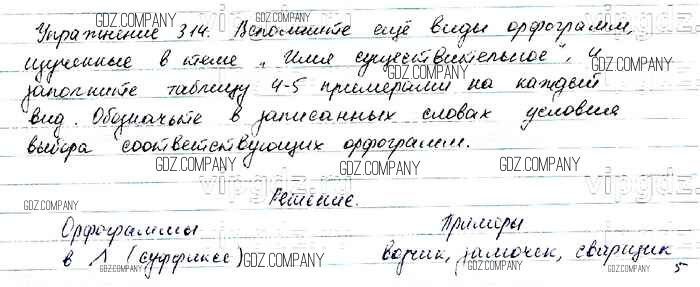 Упражнение 314. Вспомните ещё виды орфограмм,
изученные в теме „Имя существительное", и
заполните таблицу 4-5 примерами на каждый
вид. Обозначьте в записанных словах условия
выбора соответствующих орфограмм.
Решение.
Орфограммы Примеры
в (суффиксе) водчик, замочек, сварщик
5
GDZ.COMPANY
vipgdz.ru